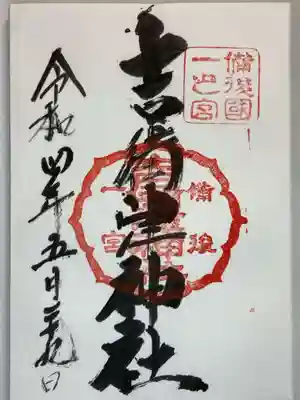 備後國
一之宮
吉備津神社
備後
一宮
令和四年五月二十九日